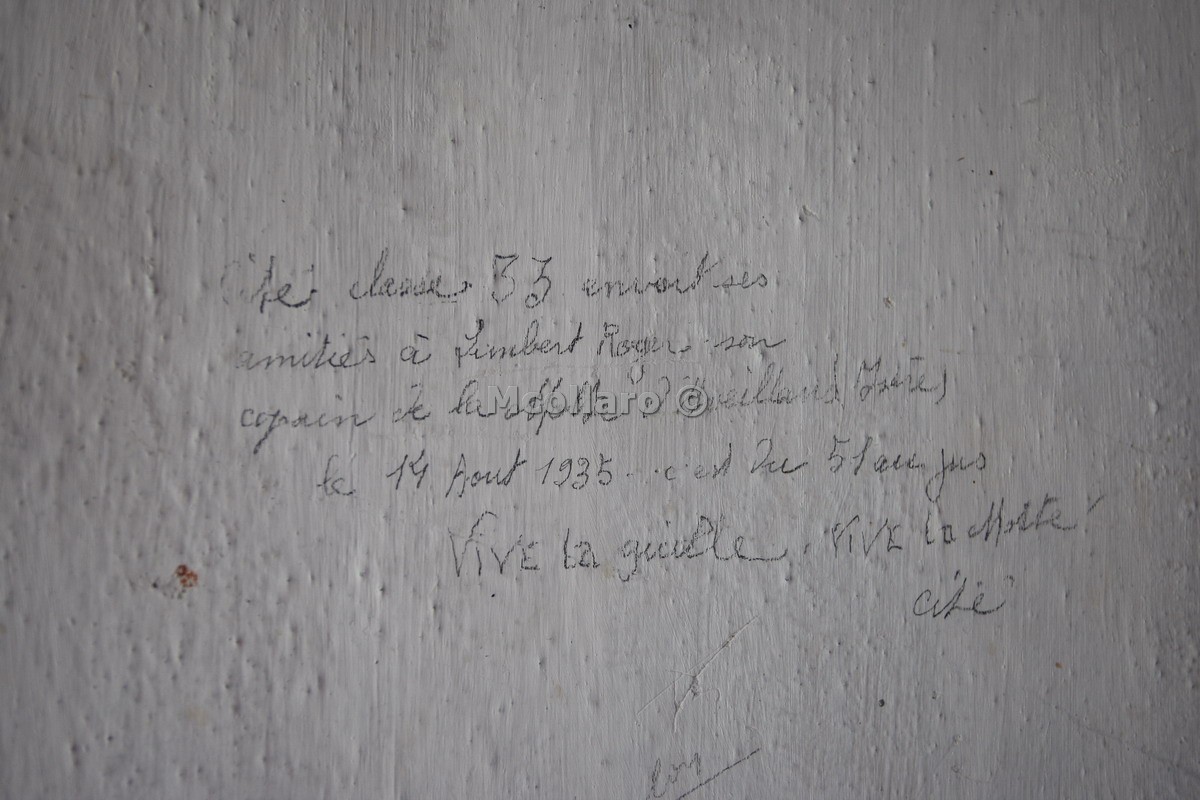 Cité classe 33 envoit ses
amitiés à Limbert Roger son
copain de la Motte d'Aveillans (Isère)
le 14 Aout 1935 c'est du 51 au jus
VIVE la quille. VIVE la Motte !
Cité
Mcollaro ©